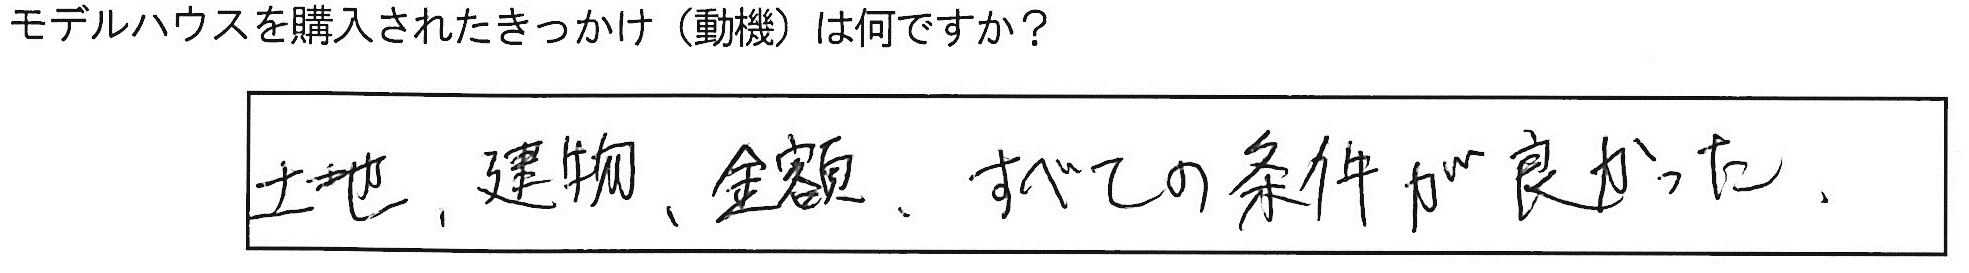 モデルハウスを購入されたきっかけ（動機）は何ですか？
土地、建物、金額、すべての条件が良かった、